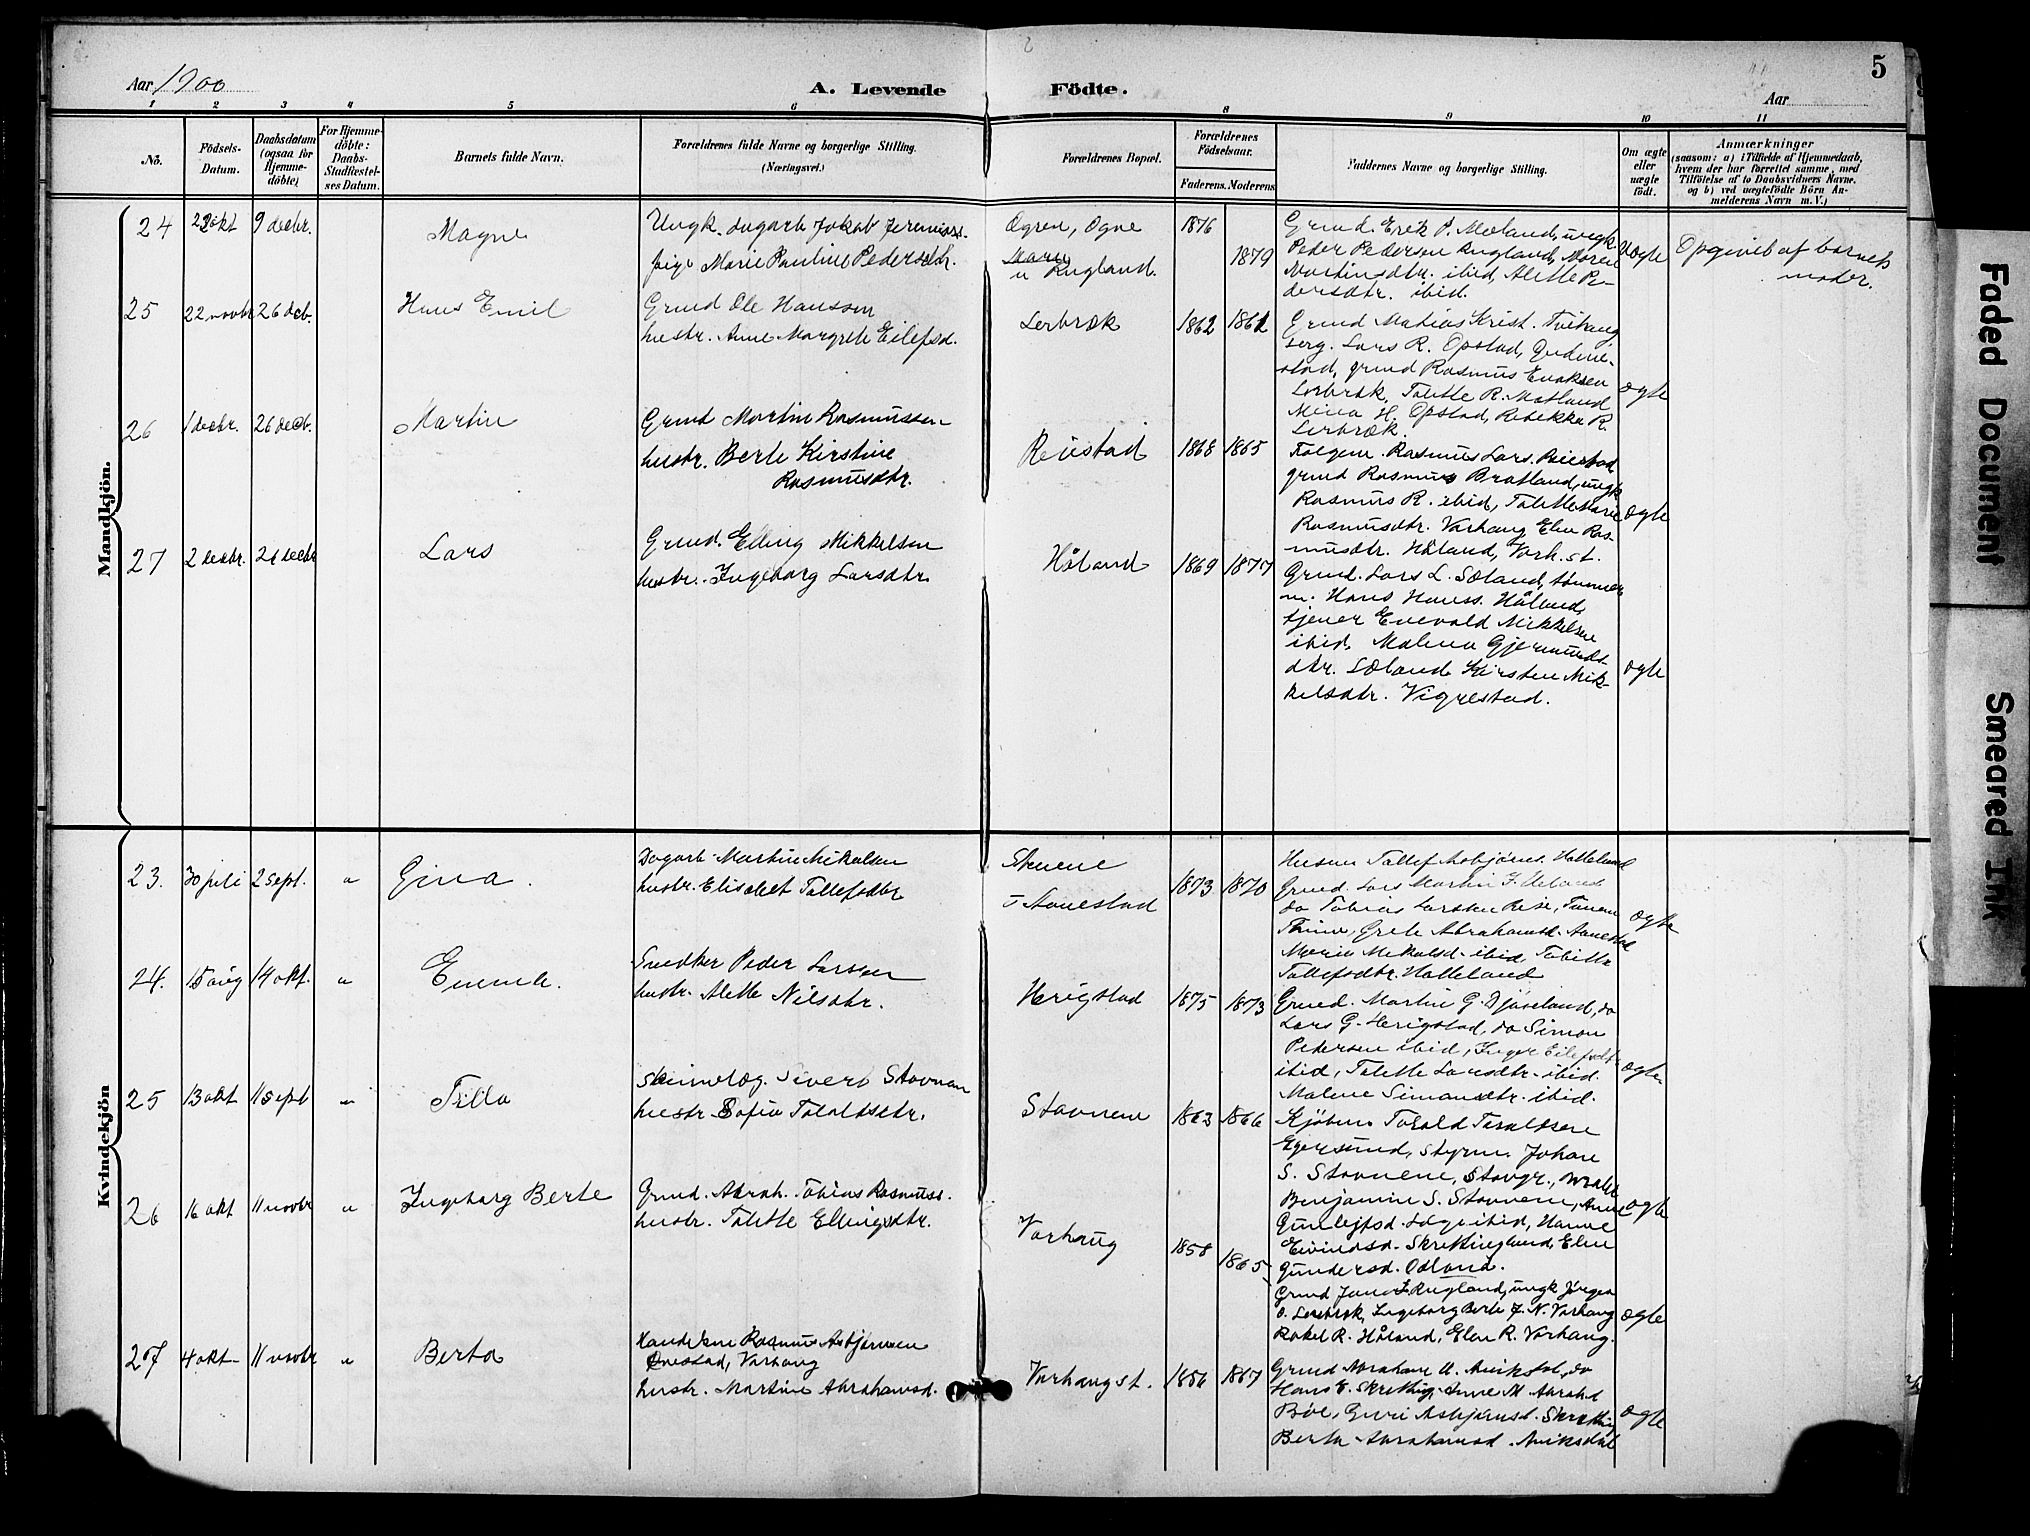 Aar 1900
A. Levende Födte.
5
Aar
1 2 3 4 5 6 8 9 10 11
No.
Födsels-
Datum.
Daabsdatum
(ogsaa for
Hjemme-
döbte)
For Hjemme-
döbte:
Daabs-
Stadfæstel-
ses Datum.
Barnets fulde Navn.
Forældrenes fulde Navne og borgerlige Stilling.
(Næringsvei.)
Forældrenes Bopæl.
Forældrenes
Födselsaar.
Faderens. Moderens
Faddernes Navne og borgerlige Stilling.
Om ægte
eller
uægte
födt.
Anmærkninger
(saasom: a) i Tilfælde af Hjemmedaab,
hvem der har forrettet samme, med
Tilföielse af to Daabsvidners Navne,
og b) ved uægtefödte Börn An-
melderens Navn m. V.)
Mandkjön.
24 22 okt 9 decbr. Magne
Ungk. dagarb Jokob Jeremiass.
pige Marie Pauline Pedersdtr.
Ogren, Ogne
Rugland.
1876
1879
Grmd. Erik P. Mæland, ungk.
Peder Pedersen Rugland, Maren
Martinsdtr. ibid, Alette Pe-
dersdtr. ibid.
Uægte
Opgivet af barnets
moder.
25 22 novbr 26 decb. Hans Emil
Grmd Ole Hanssen
hustr. Anne Margrete Eilefsd.
Lerbræk
1862 1861
Grmd Matias Krist. Tvihaug
serg. Lars R. Opstad,
stad, grmd Rasmus Enoksen
Lerbræk, Talette R. Matland
Mina H. Opstad, Rebekka R.
Lerbræk.
ægte
26 1 decbr. 26 decb. Martin
Grmd Martin Rasmussen
hustr. Berte Kirstine
Rasmusdtr.
Reiestad
1868 1865
Rasmus Lars. Reiestad
grmd Rasmus Bratland, ungk
Rasmus R. ibid, Talette Marie
Rasmusdtr. Varhaug Elen Ras-
musdtr. Håland, Varh. st.
ægte
27 2 decbr. 26 decbr Lars
Grmd. Elling Mikkelsen
hustr. Ingeborg Larsdtr.
Håland
1869 1877
Grmd. Lars L. Sæland, tömmer
m. Hans Hanss. Håland,
tjener Enevald Mikkelsen
ibid, Malena Gjermundt
dtr. Sæland Kirsten Mik-
kelsdtr. Vigrestad.
ægte
Kvindekjön
23. 30 juli 2 sept. " Gina.
Dagarb. Martin Mikalsen
hustr. Elisabet Tollefsdtr
Stuene
Aanestad
1873 1870
Husm Tollef Asbjörns. Halleland
Grmd. Lars Martin
do Tobias Larsen Rese, Tunem
Thime, Grete Abrahamsd. Aanestad
Maria Mikalsd. ibid, Tobitta
Tollefsdtr. Halleland
ægte
24. 15 aug 14 okt. " Emma.
Snedker Peder Larsen
hustr. Alette Nilsdtr.
Herigstad
1875 1873
Grmd. Martin G. Djöseland, do
Lars G. Herigstad, do Simon
Petersen ibid, Inger Eilefsdtr
ibid, Talette Larsdtr. ibid.
Malene Simonsdtr. ibid.
ægte
25 13 okt 11 sept " Tilla
Sivert Stavnem
hustr. Sofia Taraldsdtr.
Stavnene
1863 1866
Kjöbm Torald Taraldsen
Egersund, Styrm. Johan
S. Stavnene, Stavgr.,
Benjamin S. Stavnene, Anne
Gunleifsd. ibid, Hanne
Eivindsd. Skrettingland, Elen
Gundersd. Odland.
ægte
26 16 okt 11 novbr " Ingeborg Berte
Grmd. Abrah. Tobias Rasmuss.
hustr. Talette Ellingsdtr.
Varhaug
1858
1865
Grmd Rugland, ungk Jörgen
O. Lerbræk, Ingeborg Berte J. N. Varhaug
Rakel R. Håland, Elen R. Varhaug.
ægte
27 4 okt 11 novbr " Berta
Rasmus Asbjörnsen
Varhaug
hustr. Martine Abrahamsd.
Varhaug st.
1856 1867
Grmd Abraham Aniksdal, do
Hans E. Skretting, Anne M Abrahd
Böe, Guri Asbjörnsd. Skretting
Berta Abrahamsd. Aniksdal
ægte
Faded Document
Smeared Ink